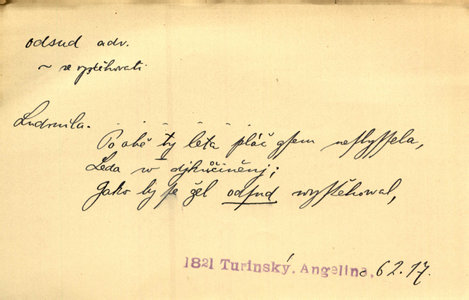 odsud adv.
~ se vystěhovati
Ludmila. . . . . . .
Po obě ty léta pláč gsem neslyssela,
Leda w djkůčiněnj;
Gako by se žel odsud wystěhowal,
1821 Turinský. Angelina, 62.17.